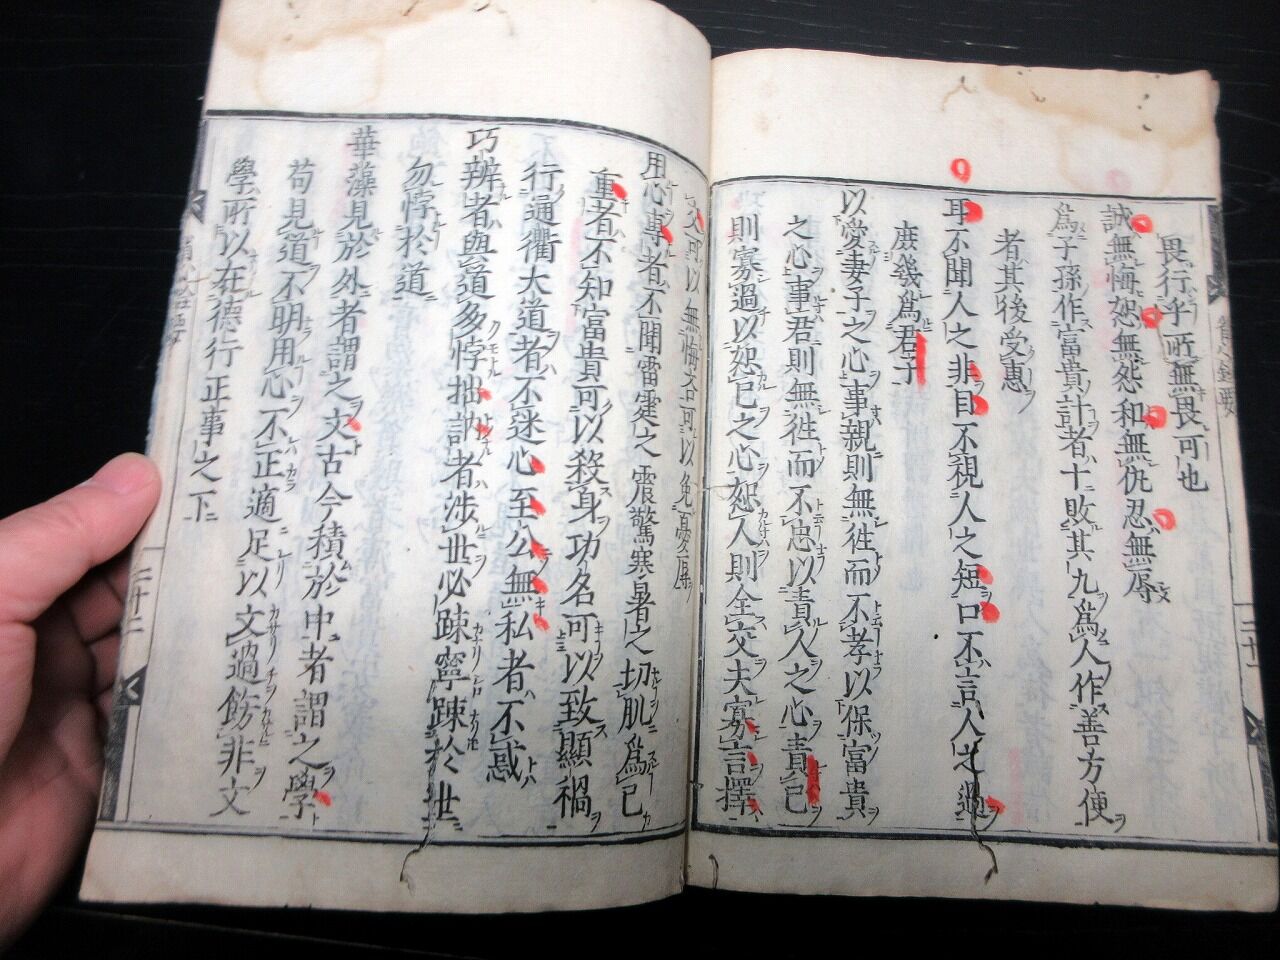 畏行乎所無畏可也
誠無悔恕無怨和無仇忍無辱
爲子孫作富貴計者十敗其九爲人作善方便
者其後受惠
耳不聞人之非目不視人之短口不言人之過
庶幾爲君子
以愛妻子之心事親則無徃而不孝以保富貴
之心事君則無徃而不忠以責人之心責己
則寡過以恕己之心恕人則全交夫寡言擇
交可以無悔吝可以免憂辱
用心專者不聞雷霆之震驚寒暑之切肌爲己
重者不知富貴可以殺身功名可以致顯禍
行通衢大道者不迷心至公無私者不惑
巧辨者與道多悖拙訥者涉世必踈寧踈於世
勿悖於道
華藻見於外者謂之文古今積於中者謂之學
苟見道不明用心不正適足以文過飾非文
學所以在德行正事之下
二十一
二十二